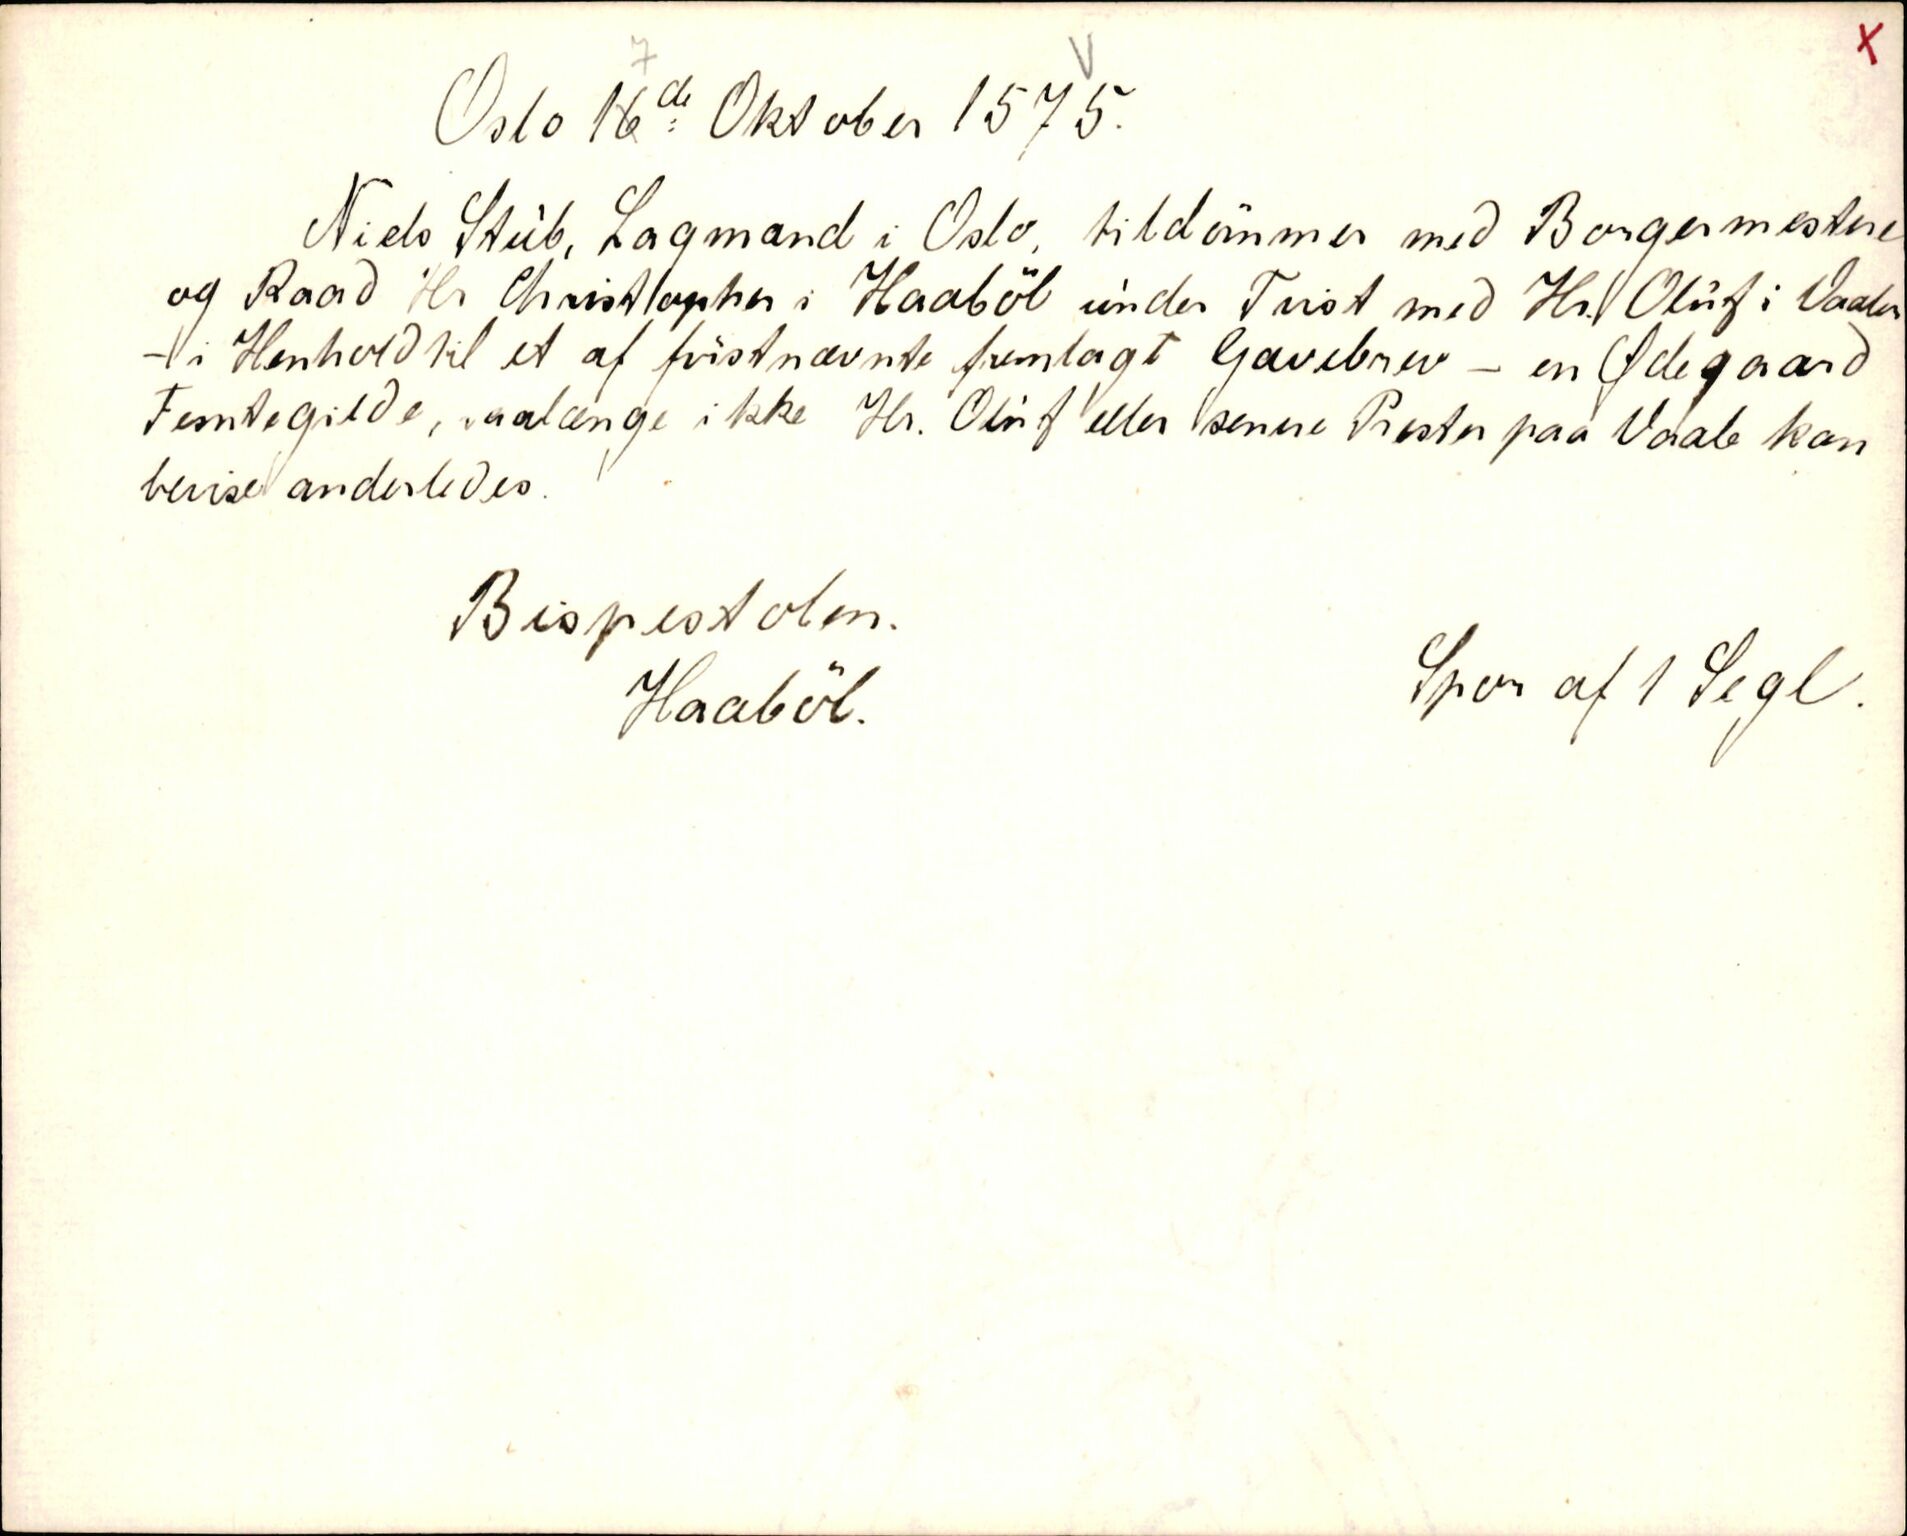 7 V x
Oslo 16de Oktober 1575.
Niels Stüb, Lagmand i Oslo, tildömmer med Borgermestere
og Raad Hr Christopher i Haaböl ünder Tvist med Hr. Olüf i Vaaler
– i Henhold til et af förstnævnte fremlagt Gavebrev – en Ødegaard
Femtegilde, saalænge ikke Hr. Olüf eller senere Prester paa Vaale kan
bevise anderledes.
Bispestolen.
Haaböl.
Spor af 1 Segl.